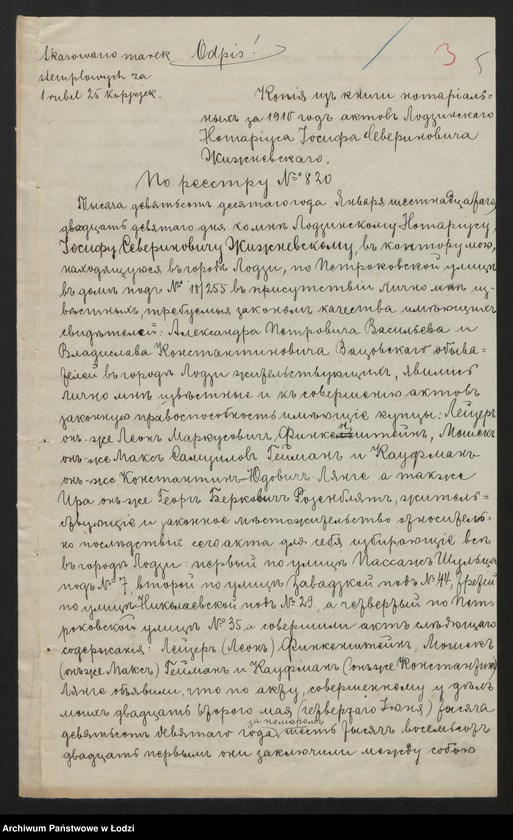 Skasowano marek
stemplowych za
1 rubel 25 kopjejek.
Odpis!
3
5
Копія изъ книги нотаріаль=
ныхъ за 1910 годъ актовъ Лодзинскаго
Нотаріуса Іосифа Севериновича
Жижневскаго.
По реестру № 820
Тысяча девятьсотъ десятаго года, Января шестнадцатаго,
двадцать девятаго дня ко мнѣ Лодзинскому Нотаріусу,
Іосифу Севериновичу Жижневскому, въ контору мою,
находящуюся въ городѣ Лодзи, по Петроковской улицѣ
въ домѣ подъ № 10/255 въ присутствіи лично мнѣ из=
вѣстныхъ, требуемыя закономъ качества имѣющихъ
свидѣтелей: Александра Петровича Васильева и
Владислава Константиновича Вацовскаго обыва=
телей въ городѣ Лодзи жительствующихъ, явились
лично мнѣ извѣстные и къ совершенію актовъ
законную правоспособность имѣющіе купцы: Лейзеръ
онъ-же Леонъ Маркусовичъ Финкенштейнъ, Мошекъ
онъ-же Максъ Самуиловъ Гейманъ и Кауфманъ
онъ-же Константинъ Юдовичъ Лянге а также
Ира онъ-же Георгъ Берковичъ Розенблятъ, житель=
ствующіе и законное мѣстожительство относитель=
но послѣдствій сего акта для себя избирающіе всѣ
въ городѣ Лодзи: первый по улицѣ Пассажъ Шульца
подъ № 7, второй по улицѣ Завадзкой подъ № 44, третій
по улицѣ Николаевской подъ № 29, а четвертый по Пет=
роковской улицѣ № 35 и совершили актъ слѣдующаго
содержанія: Лейзеръ (Леонъ) Финкенштейнъ, Мошекъ
(онъ же Максъ) Гейманъ и Кауфманъ (онъ же Константинъ)
Лянге объявили, что по акту, совершенному у
моихъ двадцать второго мая (четвертаго Іюня) тысяча
девятьсотъ девятаго года за номеромъ шесть тысячъ восемьсотъ
двадцать первымъ они заключили между собою
Archiwum Państwowe w Łodzi